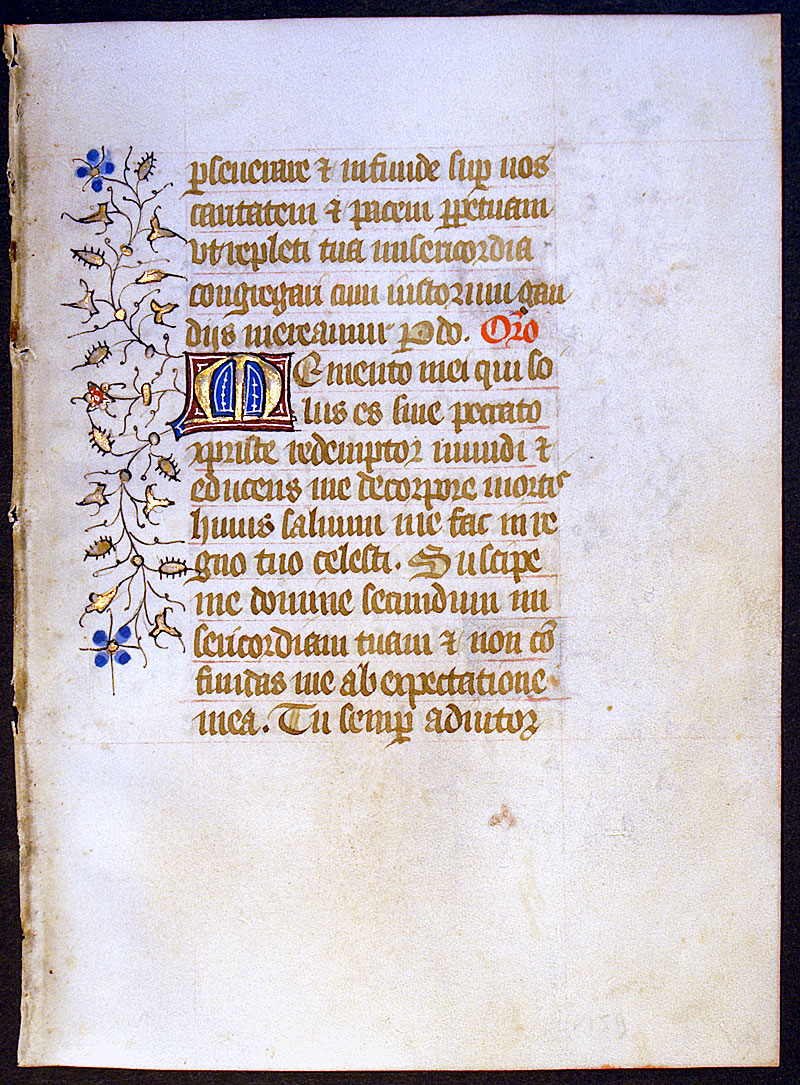 pseuerare ⁊ infunde sup nos
caritatem ⁊ pacem ppetuam
vt repleti tua misericordia
congregari cum iustorum gau
dijs mereamur P do. Oro
Memento mei qui so
lus es sine peccato
xpriste redemptor mundi ⁊
educens me de corpore mortis
huius saluum me fac in re
gno tuo celesti. Suscipe
me domine secundum mi
sericordiam tuam ⁊ non cō
fundas me ab expectatione
mea. Tu semp adiutor